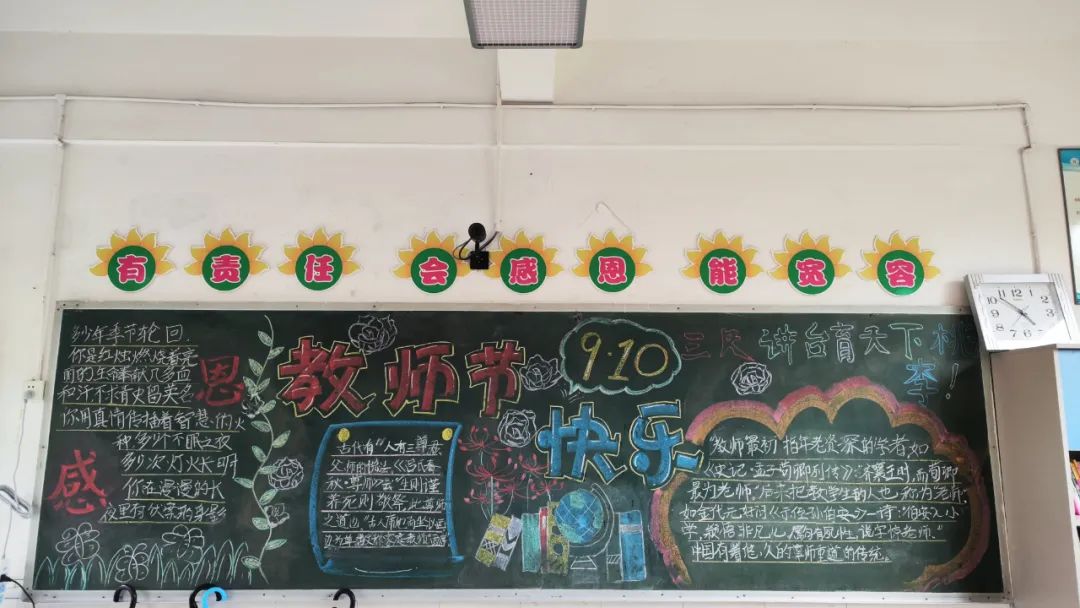 有责任 会感恩 能宽容
教师节
9.10
快乐
三尺讲台育天下桃
李!
感
恩
多少年季节轮回.
你是红烛燃烧着亮
用的生命奉献几多血
和汗不求青史留英名
你用真情传播着智慧的火
种多少个不眠之夜
多少次灯火长明
你在漫漫的长
夜里有伏案的身影
古代有“人有三尊君
父师的说法《吕氏春
秋·尊师》会“生则谨
养死则敬祭
教师最初指年老资深的学者如
《史记·孟子荀卿列传》:齐襄王时,而荀卿
最为老师”后来把教学生的人也称为老师.
如金代元好问《示侄孙伯安》一诗:伯安入小
学,颖悟非凡儿,属句有夙性,说字惊老师.”
中国有着悠久的尊师重道的传统.
12
11
10
9
8
7
6
5
4
3
2
1